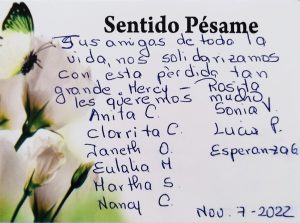 Sentido Pésame
Tus amigas de toda la
vida, nos solidarizamos
con esta pérdida tan
grande. Mercy - Rosita
les queremos mucho
Anita C. Sonia V.
Clorrita C. Lucia P.
Janeth O. Esperanza G
Eulalia H
Martha S.
Nancy C.
Nov. 7 - 2022